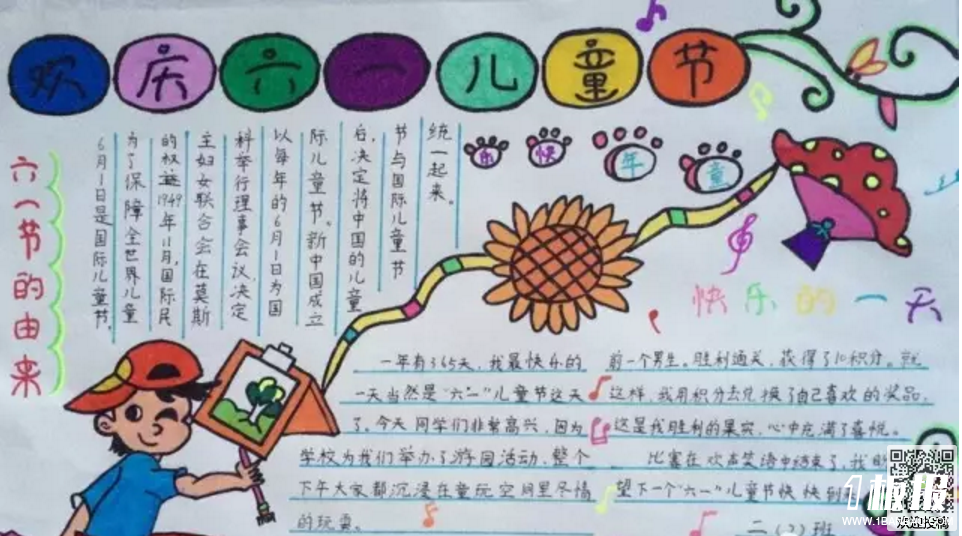 欢庆六一儿童节
乐快年童
六一节的由来
6月1日是国际儿童节。
为了保障全世界儿童
的权益1949年11月,国际民
主妇女联合会在莫斯
科举行理事会议,决定
以每年的6月1日为国
际儿童节。新中国成立
后,决定将中国的儿童
节与国际儿童节
统一起来。
快乐的一天
一年有365天,我最快乐的
一天当然是“六一”儿童节这天
了。今天同学们非常高兴,因为
学校为我们举办了游园活动,整个
下午大家都沉浸在童玩空间里尽情
的玩耍。
前一个男生。胜利通关,获得了10积分。就
这样,我用积分去兑换了自己喜欢的奖品,
这是我胜利的果实,心中充满了喜悦。
比赛在欢声笑语中结束了,我
望下一个“六一”儿童节快快到
二(2)班
1板报
WWW.1BANBAO.COM